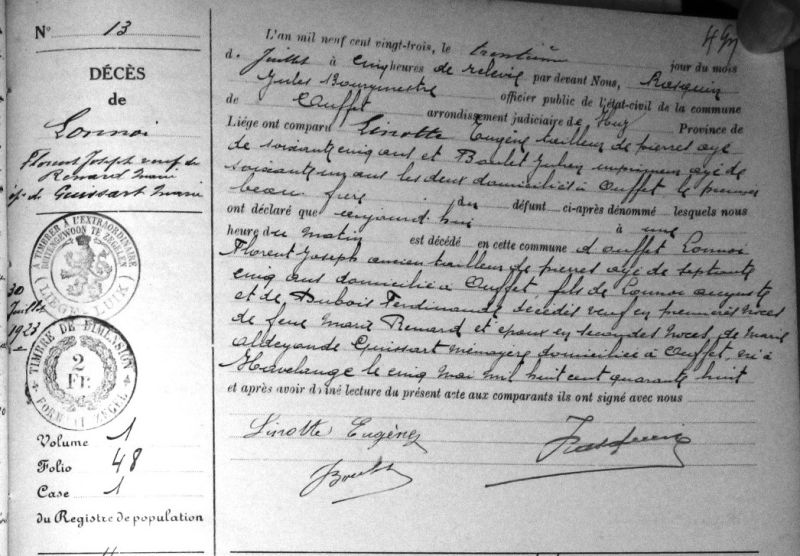 N° 13
DÉCÈS
de
Lonnoi
Florent Joseph veuf de
Renard Marie
ép. de Guissart Marie
A TIMBRER A L'EXTRAORDINAIRE
BUITENGEWOON TE ZEGELEN
LIÈGE LUIK
30
Juillet
1923
TIMBRE DE DIMENSION
2
Fr.
FORMAATZEGEL
Volume 1
Folio 48
Case 1
du Registre de population
L'an mil neuf cent vingt-trois, le trentième jour du mois
d. Juillet à cinq heures de relevée par devant Nous, Rasquin
Jules Bourgmestre officier public de l'état-civil de la commune
de Ouffet arrondissement judiciaire de Huy Province de
Liége ont comparu Linotte Eugène tailleur de pierres âgé
de soixante cinq ans et Boulet âgé de
soixante ans les deux domiciliés à Ouffet, le premier
beau frère du défunt ci-après dénommé lesquels nous
ont déclaré que aujourd'hui à une
heure du matin est décédé en cette commune d'Ouffet Lonnoi
Florent Joseph ancien tailleur de pierres âgé de septante
cinq ans domicilié à Ouffet fils de Lonnoi Auguste
et de Dubois Ferdinande décédés veuf en premières noces
de feue Marie Renard et époux en secondes noces, de Marie
Aldegonde Guissart ménagère domiciliée à Ouffet, né à
Havelange le cinq mai mil huit cent quarante huit
et après avoir donné lecture du présent acte aux comparants ils ont signé avec nous
Linotte Eugène
Boulet
Rasquin